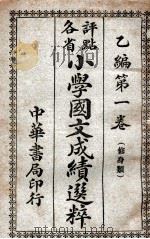 乙編第一卷
（修身類）
評點
各省
小學國文成績選粹
中華書局印行